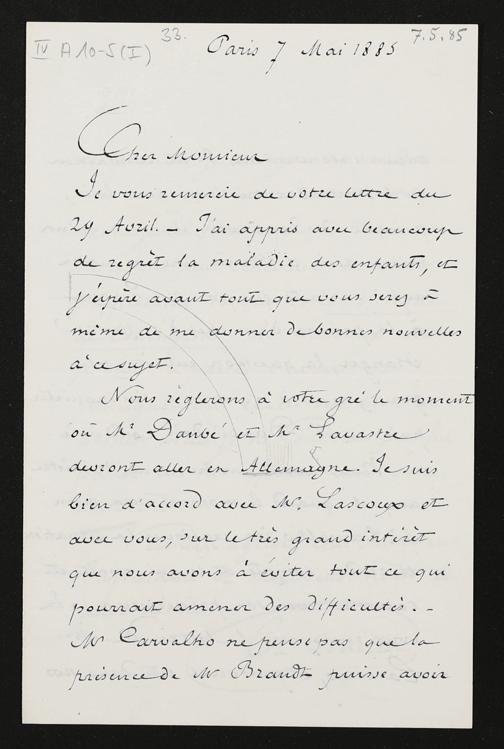 IV A 10-5 (I)
33.
7.5.85
Paris 7 Mai 1885
Cher Monsieur
Je vous remercie de votre lettre du
29 Avril. — J'ai appris avec beaucoup
de regrèt la maladie des enfants, et
j'éspère avant tout que vous serez à
même de me donner de bonnes nouvelles
à ce sujet.
Nous règlerons à votre gré le moment
où Mr Danbé et Mr Lavastre
devront aller en Allemagne. Je suis
bien d'accord avec Mr. Lascoux et
avec vous, sur le très grand intérêt
que nous avons à éviter tout ce qui
pourrait amener des difficultés. –
Mr Carvalho ne pense pas que la
présence de Mr Brandt puisse avoir